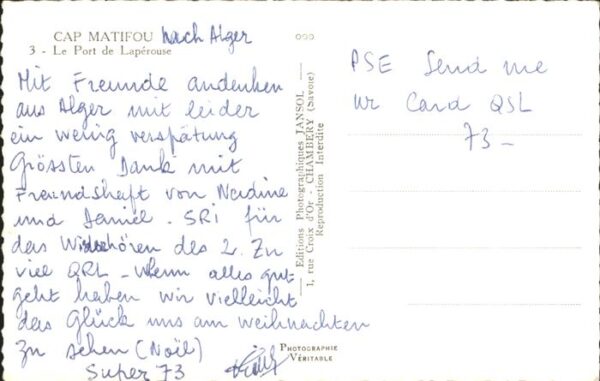 CAP MATIFOU nach Alger
3 - Le Port de Lapérouse
Mit Freunde andenken
aus Alger mit leider
ein wenig verspätung
Grössten Dank mit
Freundshaft von Nadine
und Daniel. SRI für
das Wiedehören des 2. Zu
viel QRL - Wenn alles gut
geht haben wir vielleicht
das Glück uns am Weihnachten
zu sehen (Noël)
Super 73
099
Editions Photographiques JANSOL
1, rue Croix d'Or - CHAMBÉRY (Savoie)
Reproduction Interdite
PHOTOGRAPHIE
VÉRITABLE
PSE Send me
ur Card QSL
73 -